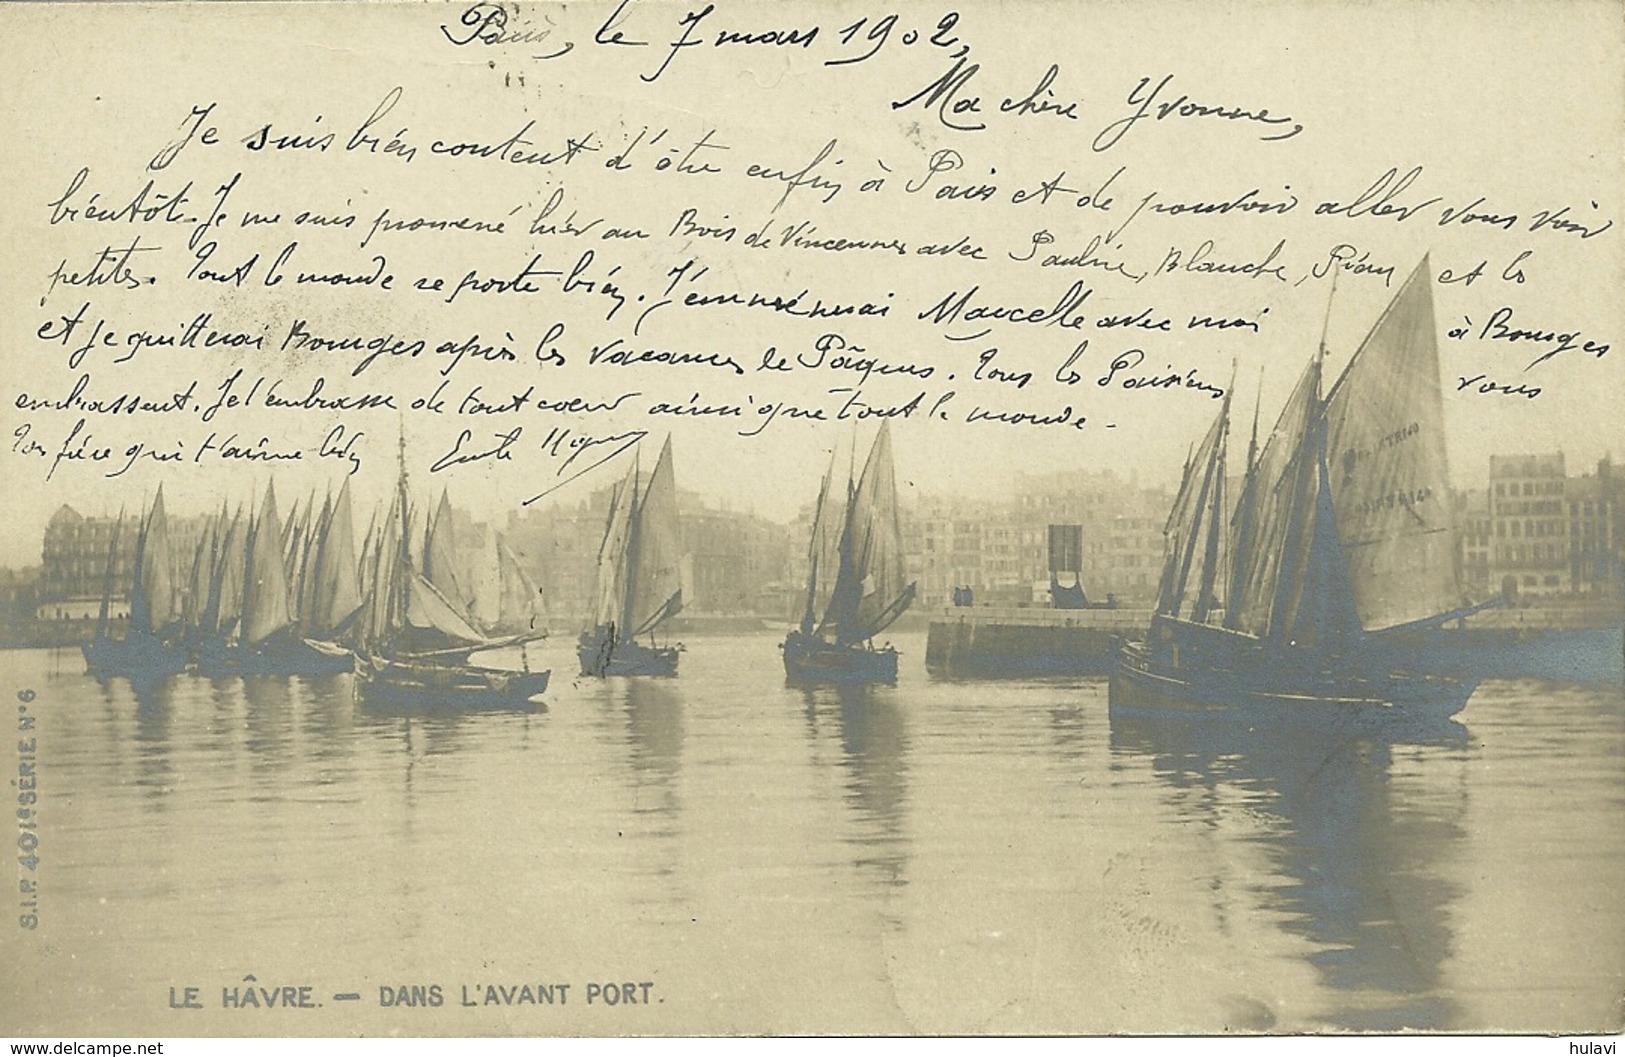 Paris, le 7 mars 1902,
Ma chère Yvonne,
Je suis bien content d'être enfin à Paris et de pouvoir aller vous voir
bientôt. Je me suis promené hier au Bois de Vincennes avec Pauline, Blanche, et les
petites. Tout le monde se porte bien. J'emmènerai Marcelle avec moi à Bourges
et je quitterai Bourges après les vacances de Pâques. Tous les Parisiens vous
embrassent. Je t'embrasse de tout coeur ainsi que tout le monde.
Ton frère qui t'aime bien Emile
S.I.P. 401e SÉRIE N°6
LE HÂVRE. — DANS L'AVANT PORT.
www.delcampe.net
hulavi